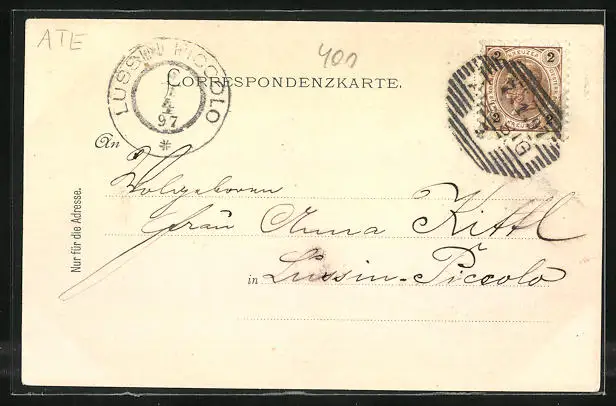 ATE
400
LUSSINPICCOLO
97
CORRESPONDENZKARTE.
2 KREUZER 2
2 2
An
Wolgeboren
Frau Anna Kittl
in Lussin-Piccolo
Nur für die Adresse.